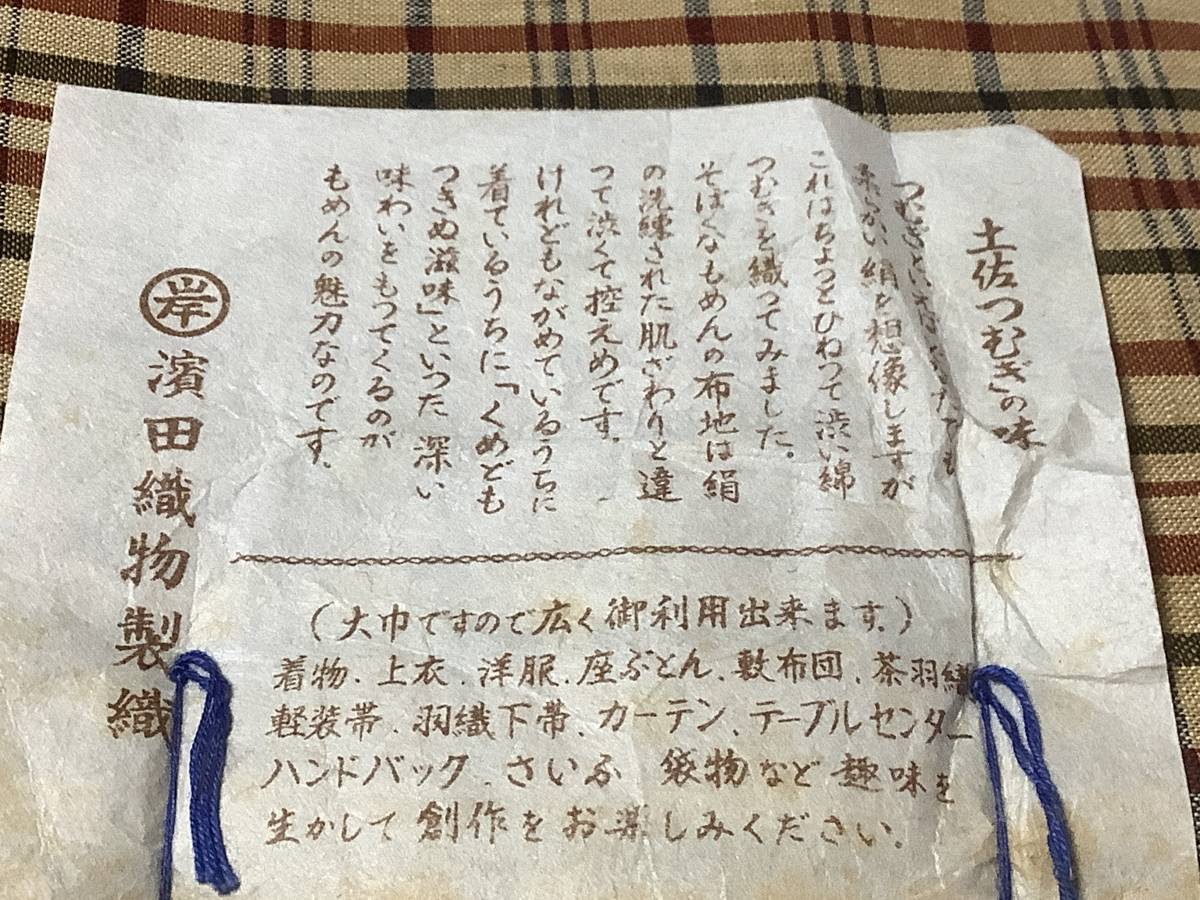 土佐つむぎの味
つむぎといえば
柔らかい絹を想像しますが
これはちょっとひねって渋い綿
つむぎを織ってみました。
そぼくなもめんの布地は絹
の洗練された肌ざわりと違
って渋くて控えめです。
けれどもながめているうちに
着ているうちに「くめども
つきぬ滋味」といった深い
味わいをもってくるのが
もめんの魅力なのです。
(大巾ですので広く御利用出来ます。)
着物、上衣、洋服、座ぶとん、敷布団、茶羽織
軽装帯、羽織下帯、カーテン、テーブルセンター
ハンドバック、さいふ 袋物など趣味を
生かして創作をお楽しみください。
岸 濱田織物製織